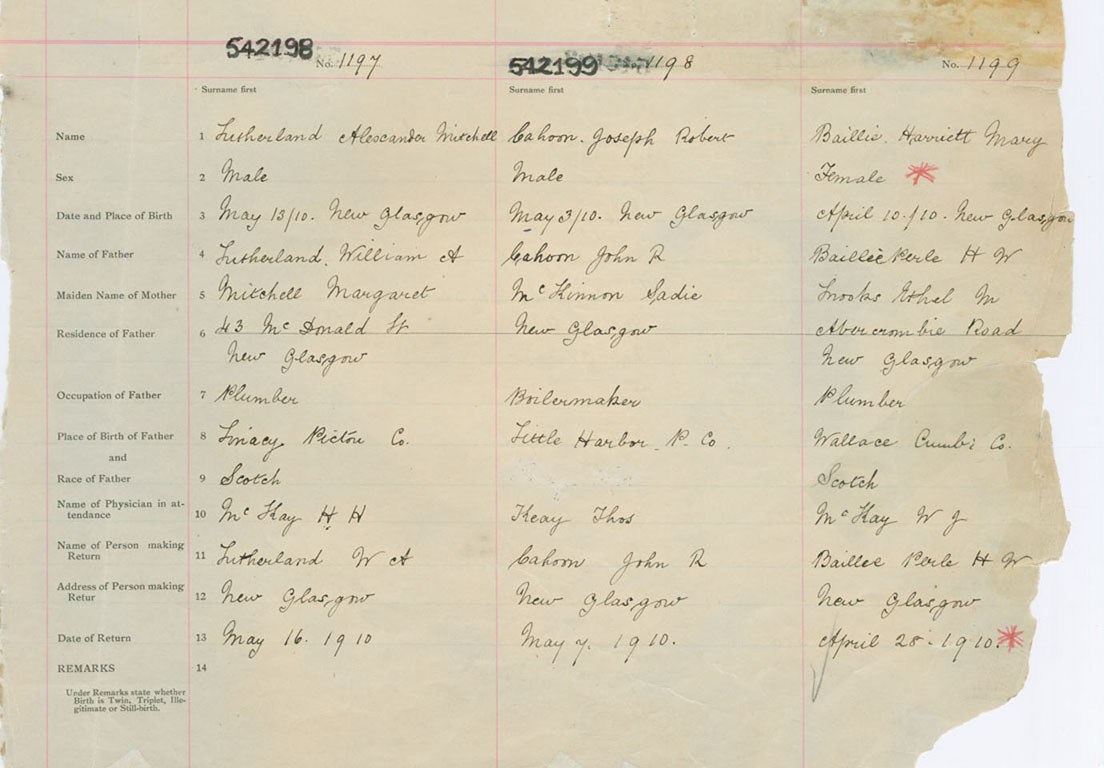 542198 No. 1197 542199 1198 No. 1199
Surname first Surname first Surname first
Name 1 Sutherland Alescander Mitchell Cahoon. Joseph Robert Baillie. Harriett Mary
Sex 2 Male Male Female
Date and Place of Birth 3 May 13/10. New Glasgow May 3/10. New Glasgow April 10/10. New Glasgow
Name of Father 4 Sutherland. William A Cahoon John R Baillie Perle H W
Maiden Name of Mother 5 Mitchell Margaret McKinnon Sadie Snooks Ethel M
Residence of Father 6 43 McDonald St New Glasgow Abercrombie Road
New Glasgow New Glasgow
Occupation of Father 7 Plumber Boilermaker Plumber
Place of Birth of Father 8 Linacy Pictou Co. Little Harbor P. Co. Wallace Cumb: Co.
and
Race of Father 9 Scotch Scotch
Name of Physician in at-
tendance 10 McKay H H Keay Thos McKay W J
Name of Person making
Return 11 Sutherland W A Cahoon John R Baillie Perle H W
Address of Person making
Retur 12 New Glasgow New Glasgow New Glasgow
Date of Return 13 May 16. 1910 May 7. 1910. April 28-1910.
REMARKS 14
Under Remarks state whether
Birth is Twin, Triplet, Ille-
gitimate or Still-birth.